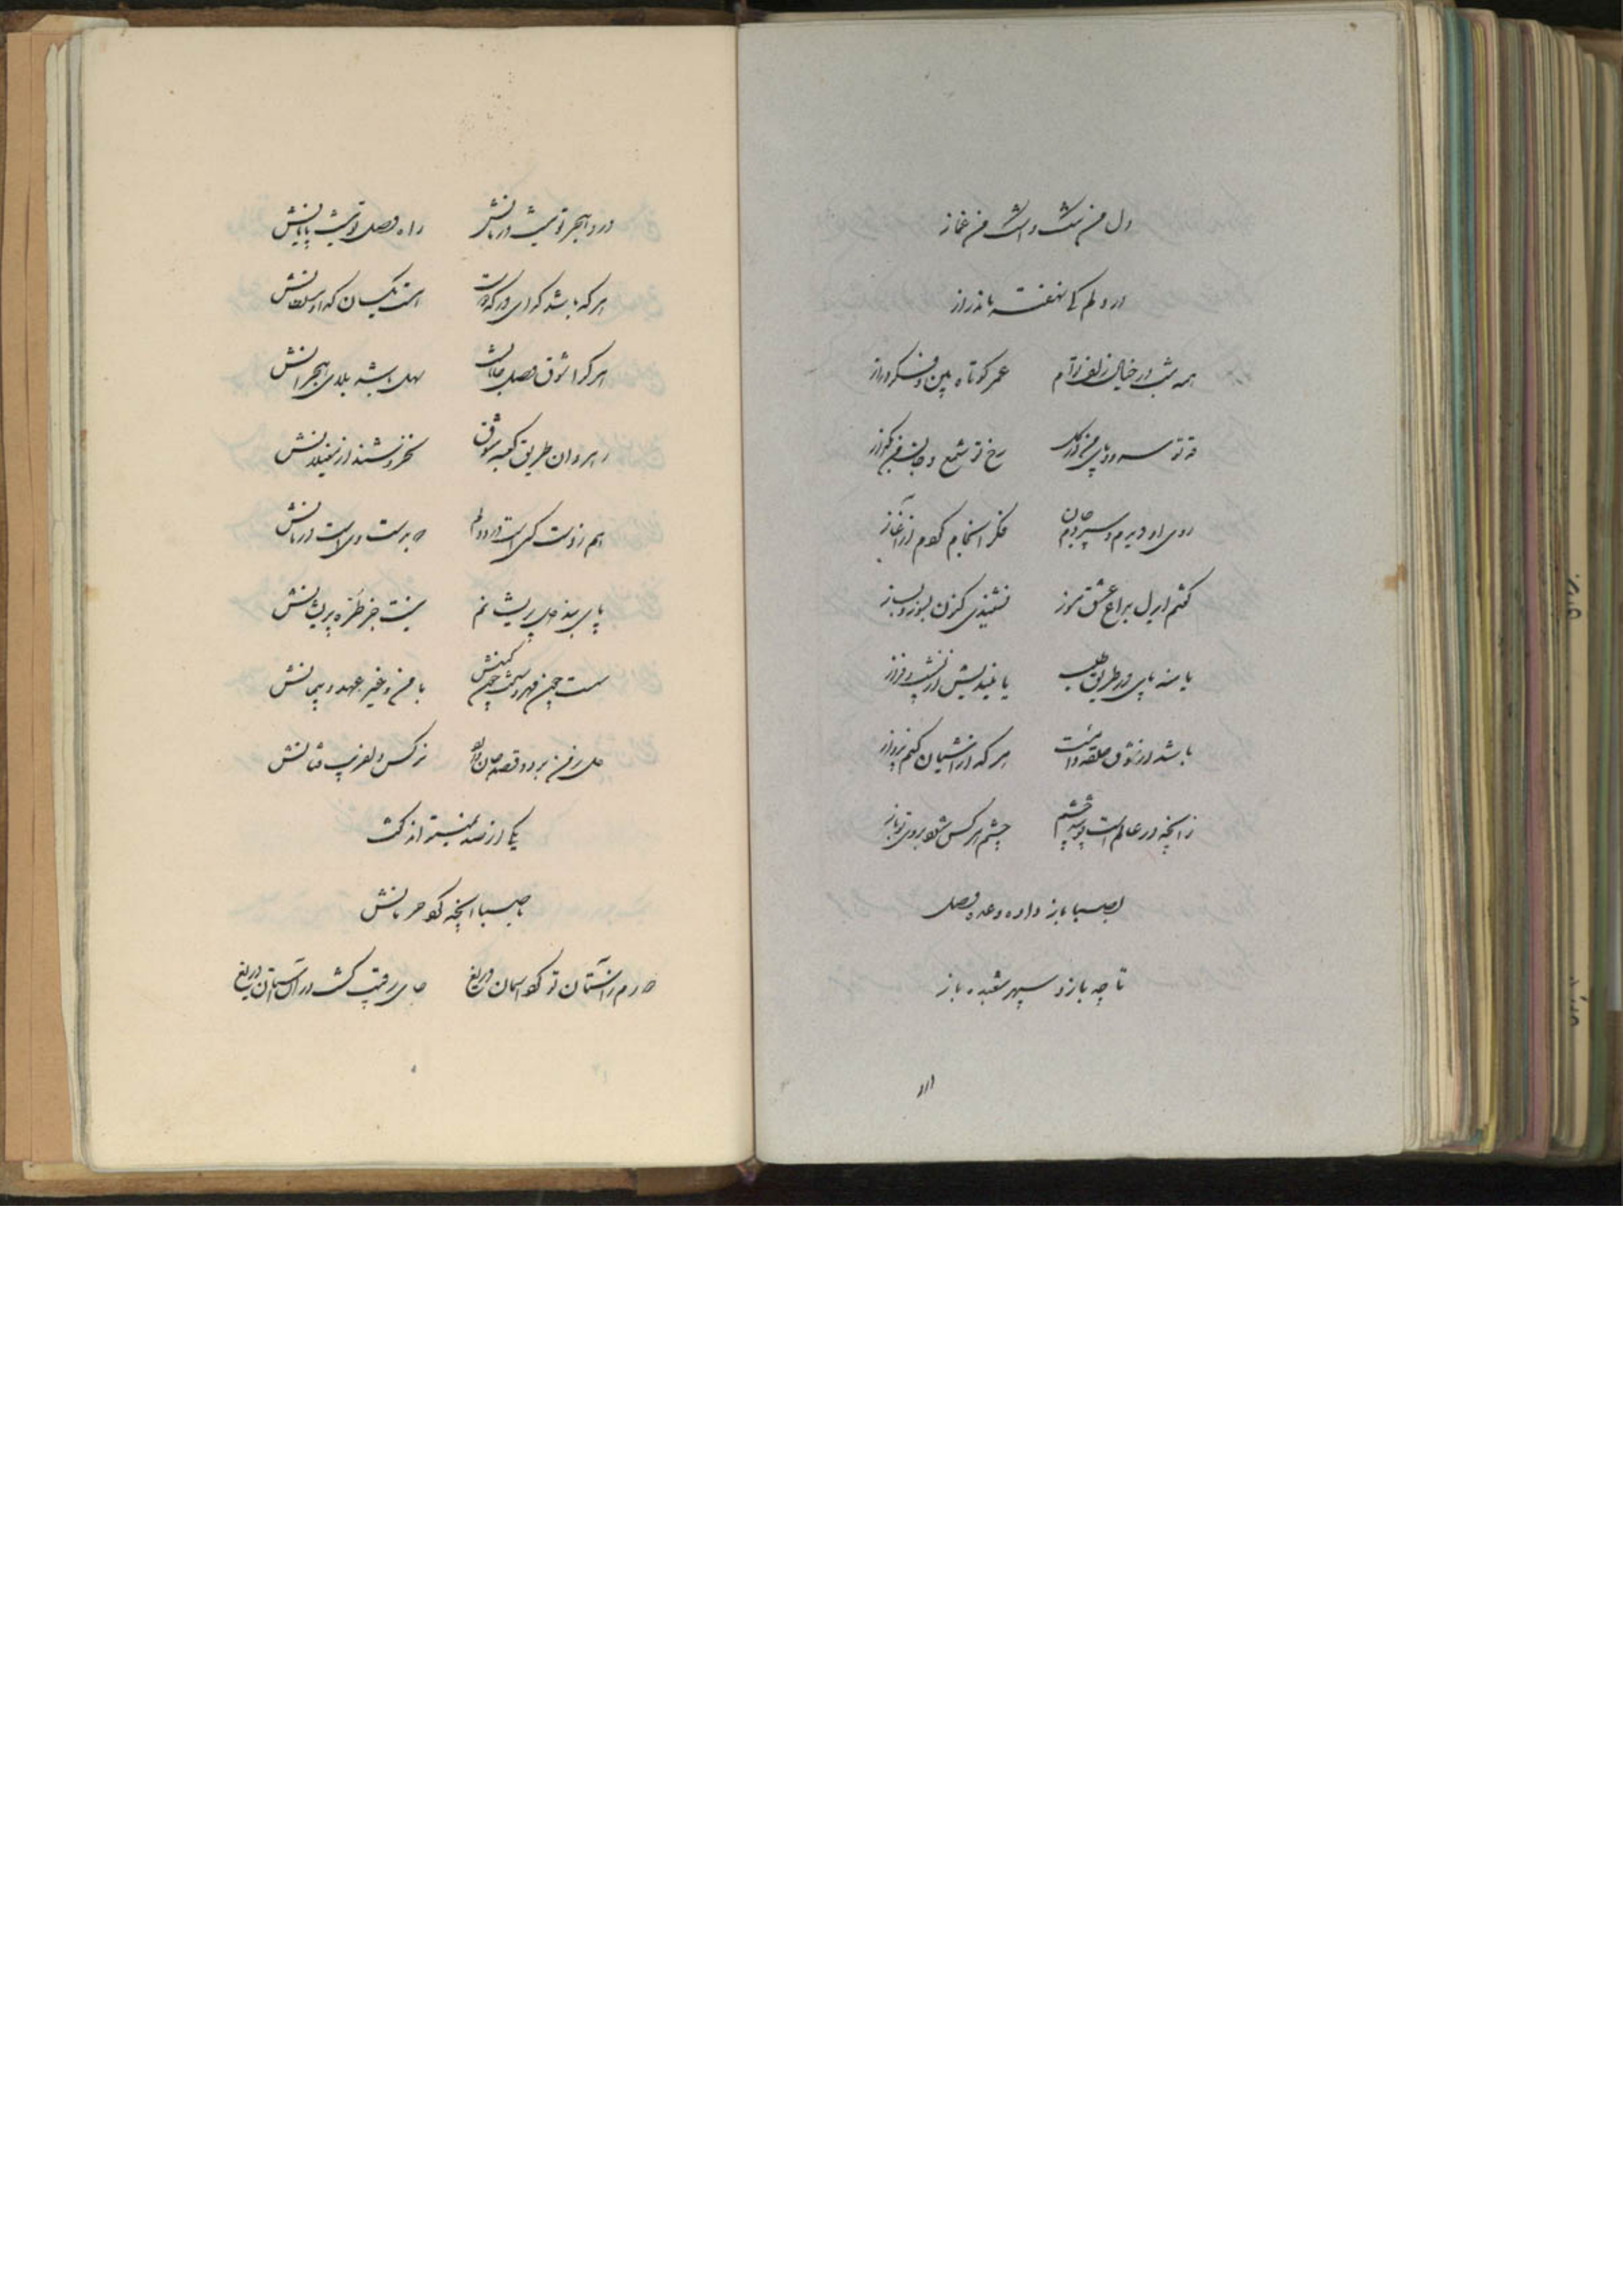 دل من شد و اشک من غماز
در دلم کی نهفته ماند راز
همه شب در خیال زلف توام عمر کوتاه بین و فکر دراز
قد تو سرو و پای من در گل رخ تو شمع و جان من بگداز
روی او دیدم و سپردم جان فکر انجام کردم از آغاز
گفتم ای دل براغ عشق مسوز نشنیدی کنون بسوز و بساز
یا منه پای در طریق طلب یا میندیش از نشیب و فراز
باشد از شوق حلقه دامت هر که از آشیان کنم پرواز
زآنچه در عالم است پوشد چشم چشم هر کس شود بروی تو باز
صبا باز داده وعده وصل
تا چه بازد سپهر شعبده باز
درد هجر تو نیست درمانش راه وصل تو نیست پایانش
هر که باشد گدای درگه دوست است یکسان گدا و سلطانش
هر کرا شوق وصل جانانست سهل باشد بلای هجرانش
رهروان طریق کعبه شوق نخروشند از مغیلانش
هم ز دست کسی است درد دلم که بدست وی است درمانش
پای بند دل پریشانم نیست جز طره پریشانش
سست چون مهر و سخت چون کینش با من و غیر عهد و پیمانش
دل ز من برد و قصد جان دارد نرگس دلفریب فتانش
یکی از صد نمیتواند گفت
با صبا آنچه کرد حرمانش
دورم ز آستان تو کرد آسمان دریغ جای رقیب گشت در آن آستان دریغ